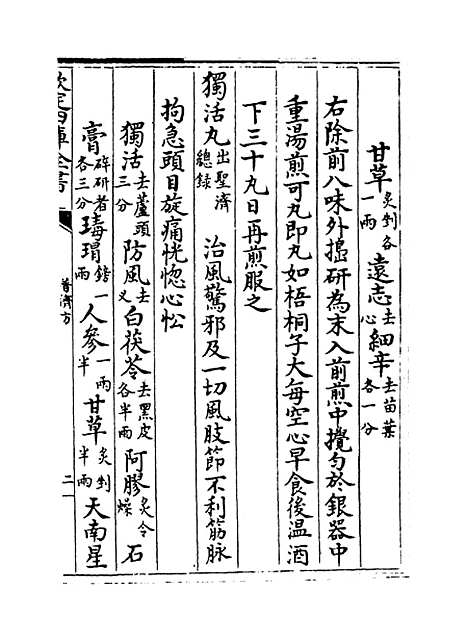 甘草炙剉各一兩 遠志去心 細辛去苗葉各一分
右除前八味外搗研為末入前煎中攪勻於銀器中
重湯煎可丸即丸如梧桐子大每空心早食後温酒
下三十丸日再煎服之
獨活丸出聖濟總錄 治風驚邪及一切風肢節不利筋脉
拘急頭目旋痛恍惚心忪
獨活去蘆頭三分 防風去叉 白茯苓去黑皮各半兩 阿膠炙令燥 石
膏碎研者各三分 瑇瑁鎊一兩 人參一兩半 甘草炙剉半兩 天南星
欽定四庫全書
普濟方
二一